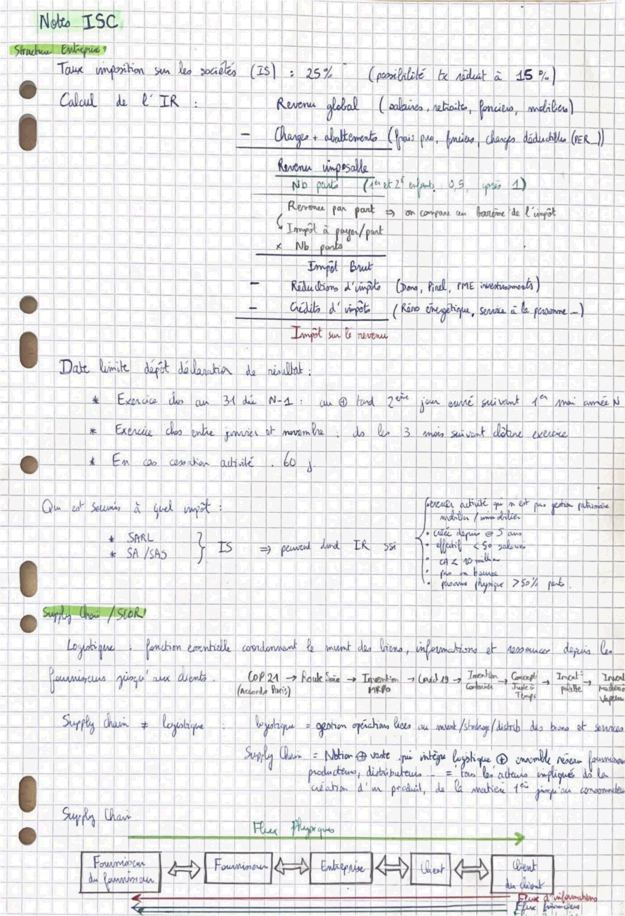 Notes ISC
Structure Entreprise
Taux imposition sur les sociétés (IS) : 25% (possibilité tx réduit à 15%)
Calcul de l'IR : Revenu global (salaires, retraites, fonciers, mobiliers)
- Charges + abattements (frais pro, fonciers, charges déductibles (PER...))
Revenu imposable
Nb parts (1er et 2e enfants 0,5, après 1)
Revenu par part ⇒ on compare au barème de l'impôt
Impôt à payer/part
× Nb parts
Impôt Brut
- Réductions d'impôts (Dons, Pinel, PME investissements)
- Crédits d'impôts (Réno énergétique, service à la personne...)
Impôt sur le revenu
Date limite dépôt déclaration de résultat :
* Exercice clos au 31 déc N-1 : au ⊕ tard 2ème jour ouvré suivant 1er mai année N
* Exercice clos entre janvier et novembre : ds les 3 mois suivant clôture exercice
* En cas cessation activité : 60 j
Qui est soumis à quel impôt :
* SARL
* SA/SAS
} IS ⇒ peuvent IR ssi
exercer activité qui n'est pas gestion patrimoine
mobilier / immobilier
• créée depuis 5 ans
• effectif < 50 salariés
• CA < 10 millions
• pas en bourse
• personne physique > 50% parts
Supply Chain / SCOR
Logistique : fonction essentielle coordonnant le mvmt des biens, informations et ressources depuis les
fournisseurs jusqu'aux clients.
COP 21 → Route Soie → Invention → Covid 19 → Invention → Concept → Invent° → Invent
(Accords Paris) MRP0 Conteneur Juste à palette Machine
Temps Vapeur
Supply chain ≠ logistique : logistique = gestion opérations liées au mvmt/stockage/distrib des biens et services
Supply Chain = Notion ⊕ vaste qui intègre logistique ⊕ ensemble réseau fournisseurs
producteurs, distributeurs... = tous les acteurs impliqués ds la
création d'un produit, de la matière 1ère jusqu'au consommateur
Supply Chain
Flux Physiques
Fournisseur du fournisseur ⇔ Fournisseur ⇔ Entreprise ⇔ Client ⇔ Client du client
Flux d'informations
Flux financiers